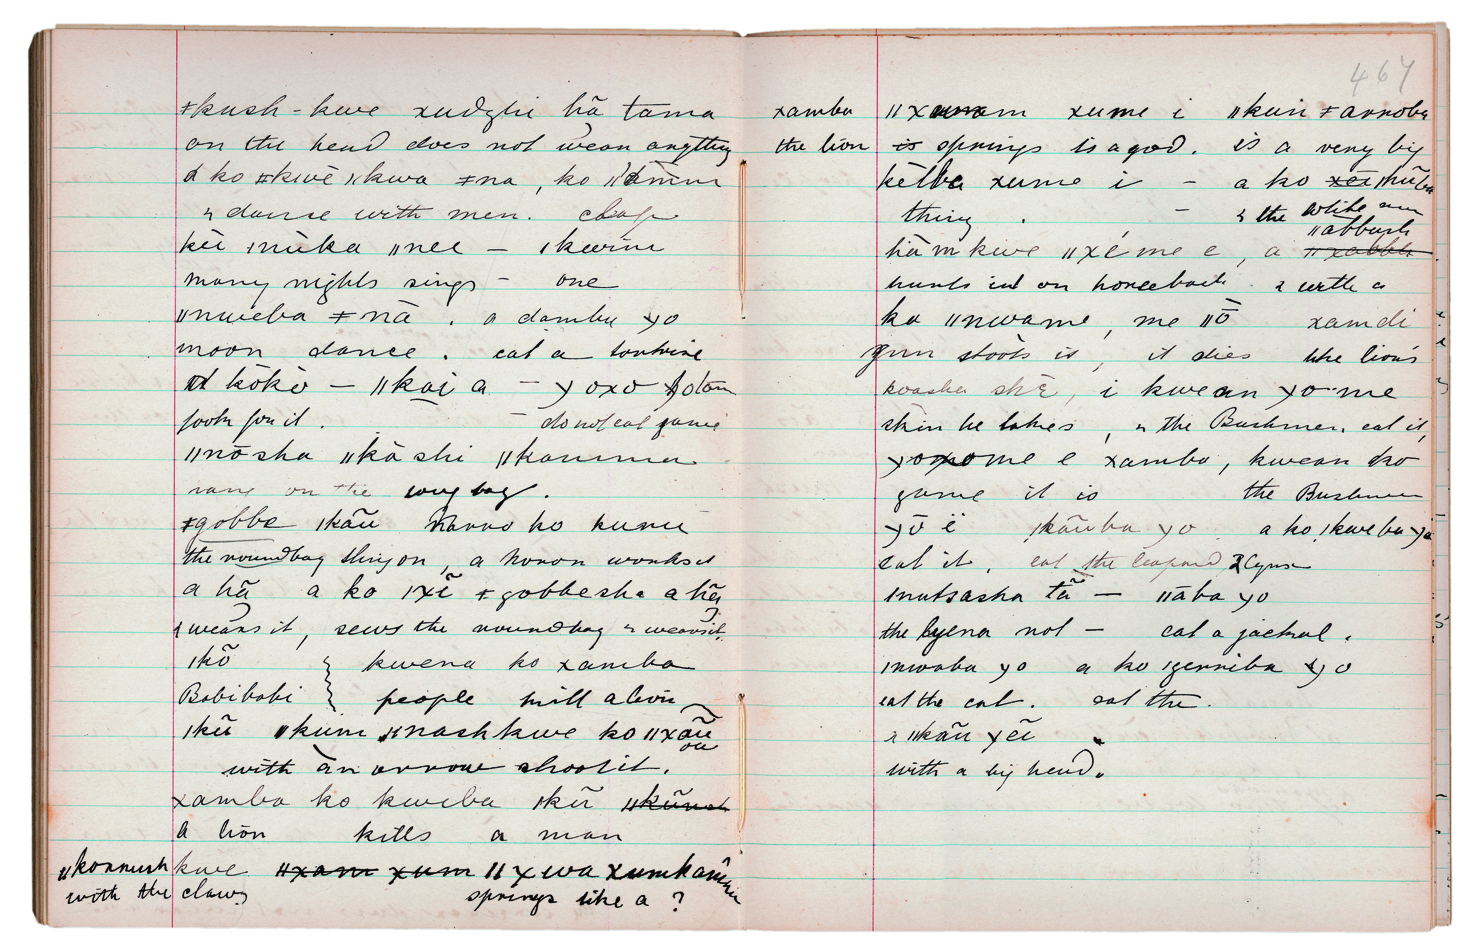 ǂkush - kwe xudzhi hã tama
on the head does not wear anything
a ko ǂkwè ǁkwa ǂna, ko
& danse with men. clap
kèi ǀnuka ǁnee — ǀkwine
many nights sings - one
ǁnweba ǂnā . a dambu yo
moon dance . eat a tortoise
kōkò — ǁkoi a — yoxo
look for it . - do not eat game
ǁnōsha ǁkà shi ǁkamma
hang on the long bag .
ǂgobbe ǀkãũ ko kunu
the roundbag sling on, a works it
a hã a ko ǀxĩ ǂgobbesha a hã
& wears it, sews the roundbag & wears it.
ǀkõ kwena ko xamba
Bobibobi people kill a lion
ǀkũ ǁkum ǁnashkwe ko ǁxãũ
ou
with an arrow shoot it.
xamba ko kweba ǀkũ
a lion kills a man
ǁkonnush kwe ǁxam xum ǁxwa
with the claws springs like a ?
467
xamba ǁxam xume i ǁkui ǂannoba
the lion is springs is a god. is a very big
kèlba xume i - a ko xei
thing . - & the white man
ǁabbush
hàm kwe ǁxéme e, a ǁxabbe
hunts it on horseback . & with a
ka ǁnwame, me ǁō xamdi
gun shoots it, it dies the lion's
koasha shē, i kwean yo me
skin he takes, & the Bushmen eat it,
yoxome e xamba, kwean ko
game it is the Bushmen
yō ë ǀkãuba yo a ko ǀkweba yo
eat it, eat the leopard, & lynx
ǀnutsasha tã — ǁāba yo
the hyena not — eat a jackal .
ǀnwaba yo a ko ǀgenniba yo
eat the cat . eat the .
a ǁkãu yẽi
with a big head.